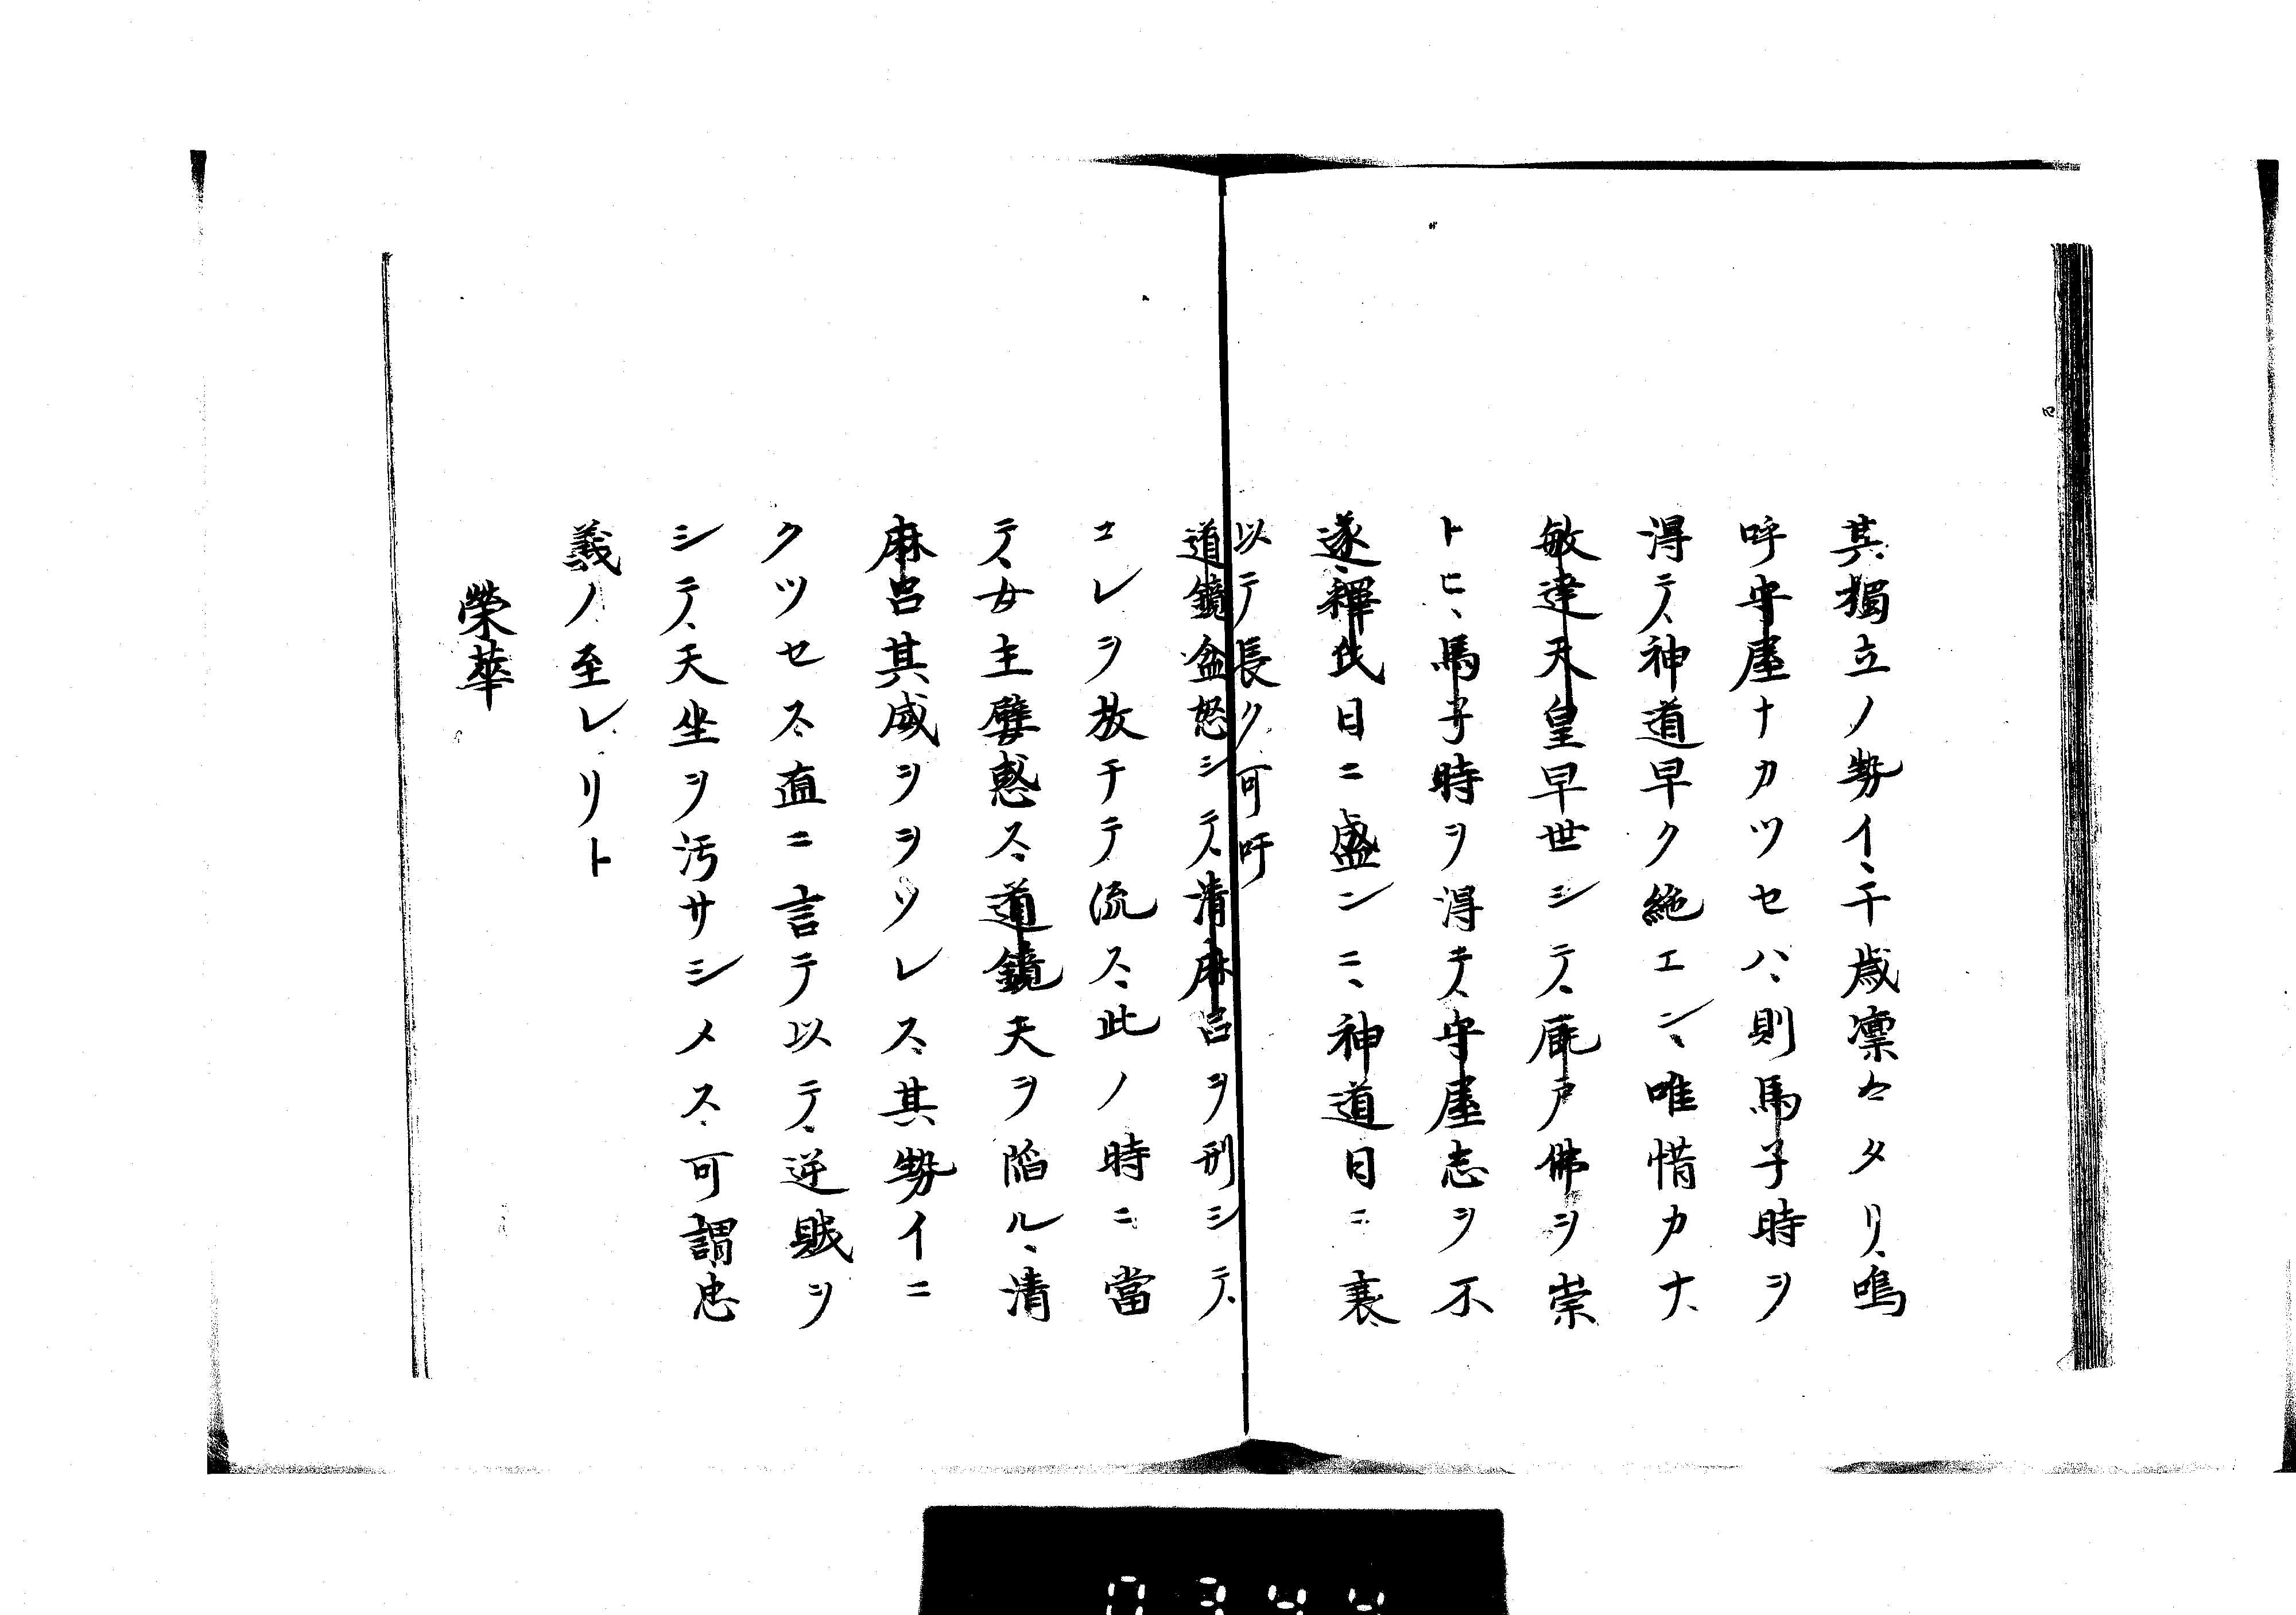 其獨立ノ勢イ、千歳凛々タリ、嗚
呼守屋ナカツセハ、則馬子時ヲ
得テ、神道早ク絶エン、唯惜カナ、
敏達天皇早世シテ、厩戸佛ヲ崇
トヒ、馬子時ヲ得テ、守屋志ヲ不
遂、釋氏日ニ盛ンニ、神道日ニ衰、
以テ長ク可吁
道鏡忿怒シテ、清麻呂ヲ刑シテ、
コレヲ放チテ流ス、此ノ時ニ當
テ、女主嬖惑ス、道鏡天ヲ陷ル、清
麻呂其威ヲヲソレス、其勢イニ
クツセス、直ニ言テ以テ、逆賊ヲ
シテ、天坐ヲ汚サシメス、可謂忠
義ノ至レリト
榮華
0344